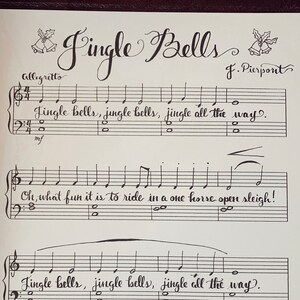 Jingle Bells
Allegretto
J. Pierpont
Jingle bells, jingle bells, jingle all the way.
mf
Oh, what fun it is to ride in a one horse open sleigh!
Jingle bells, jingle bells, jingle all the way.